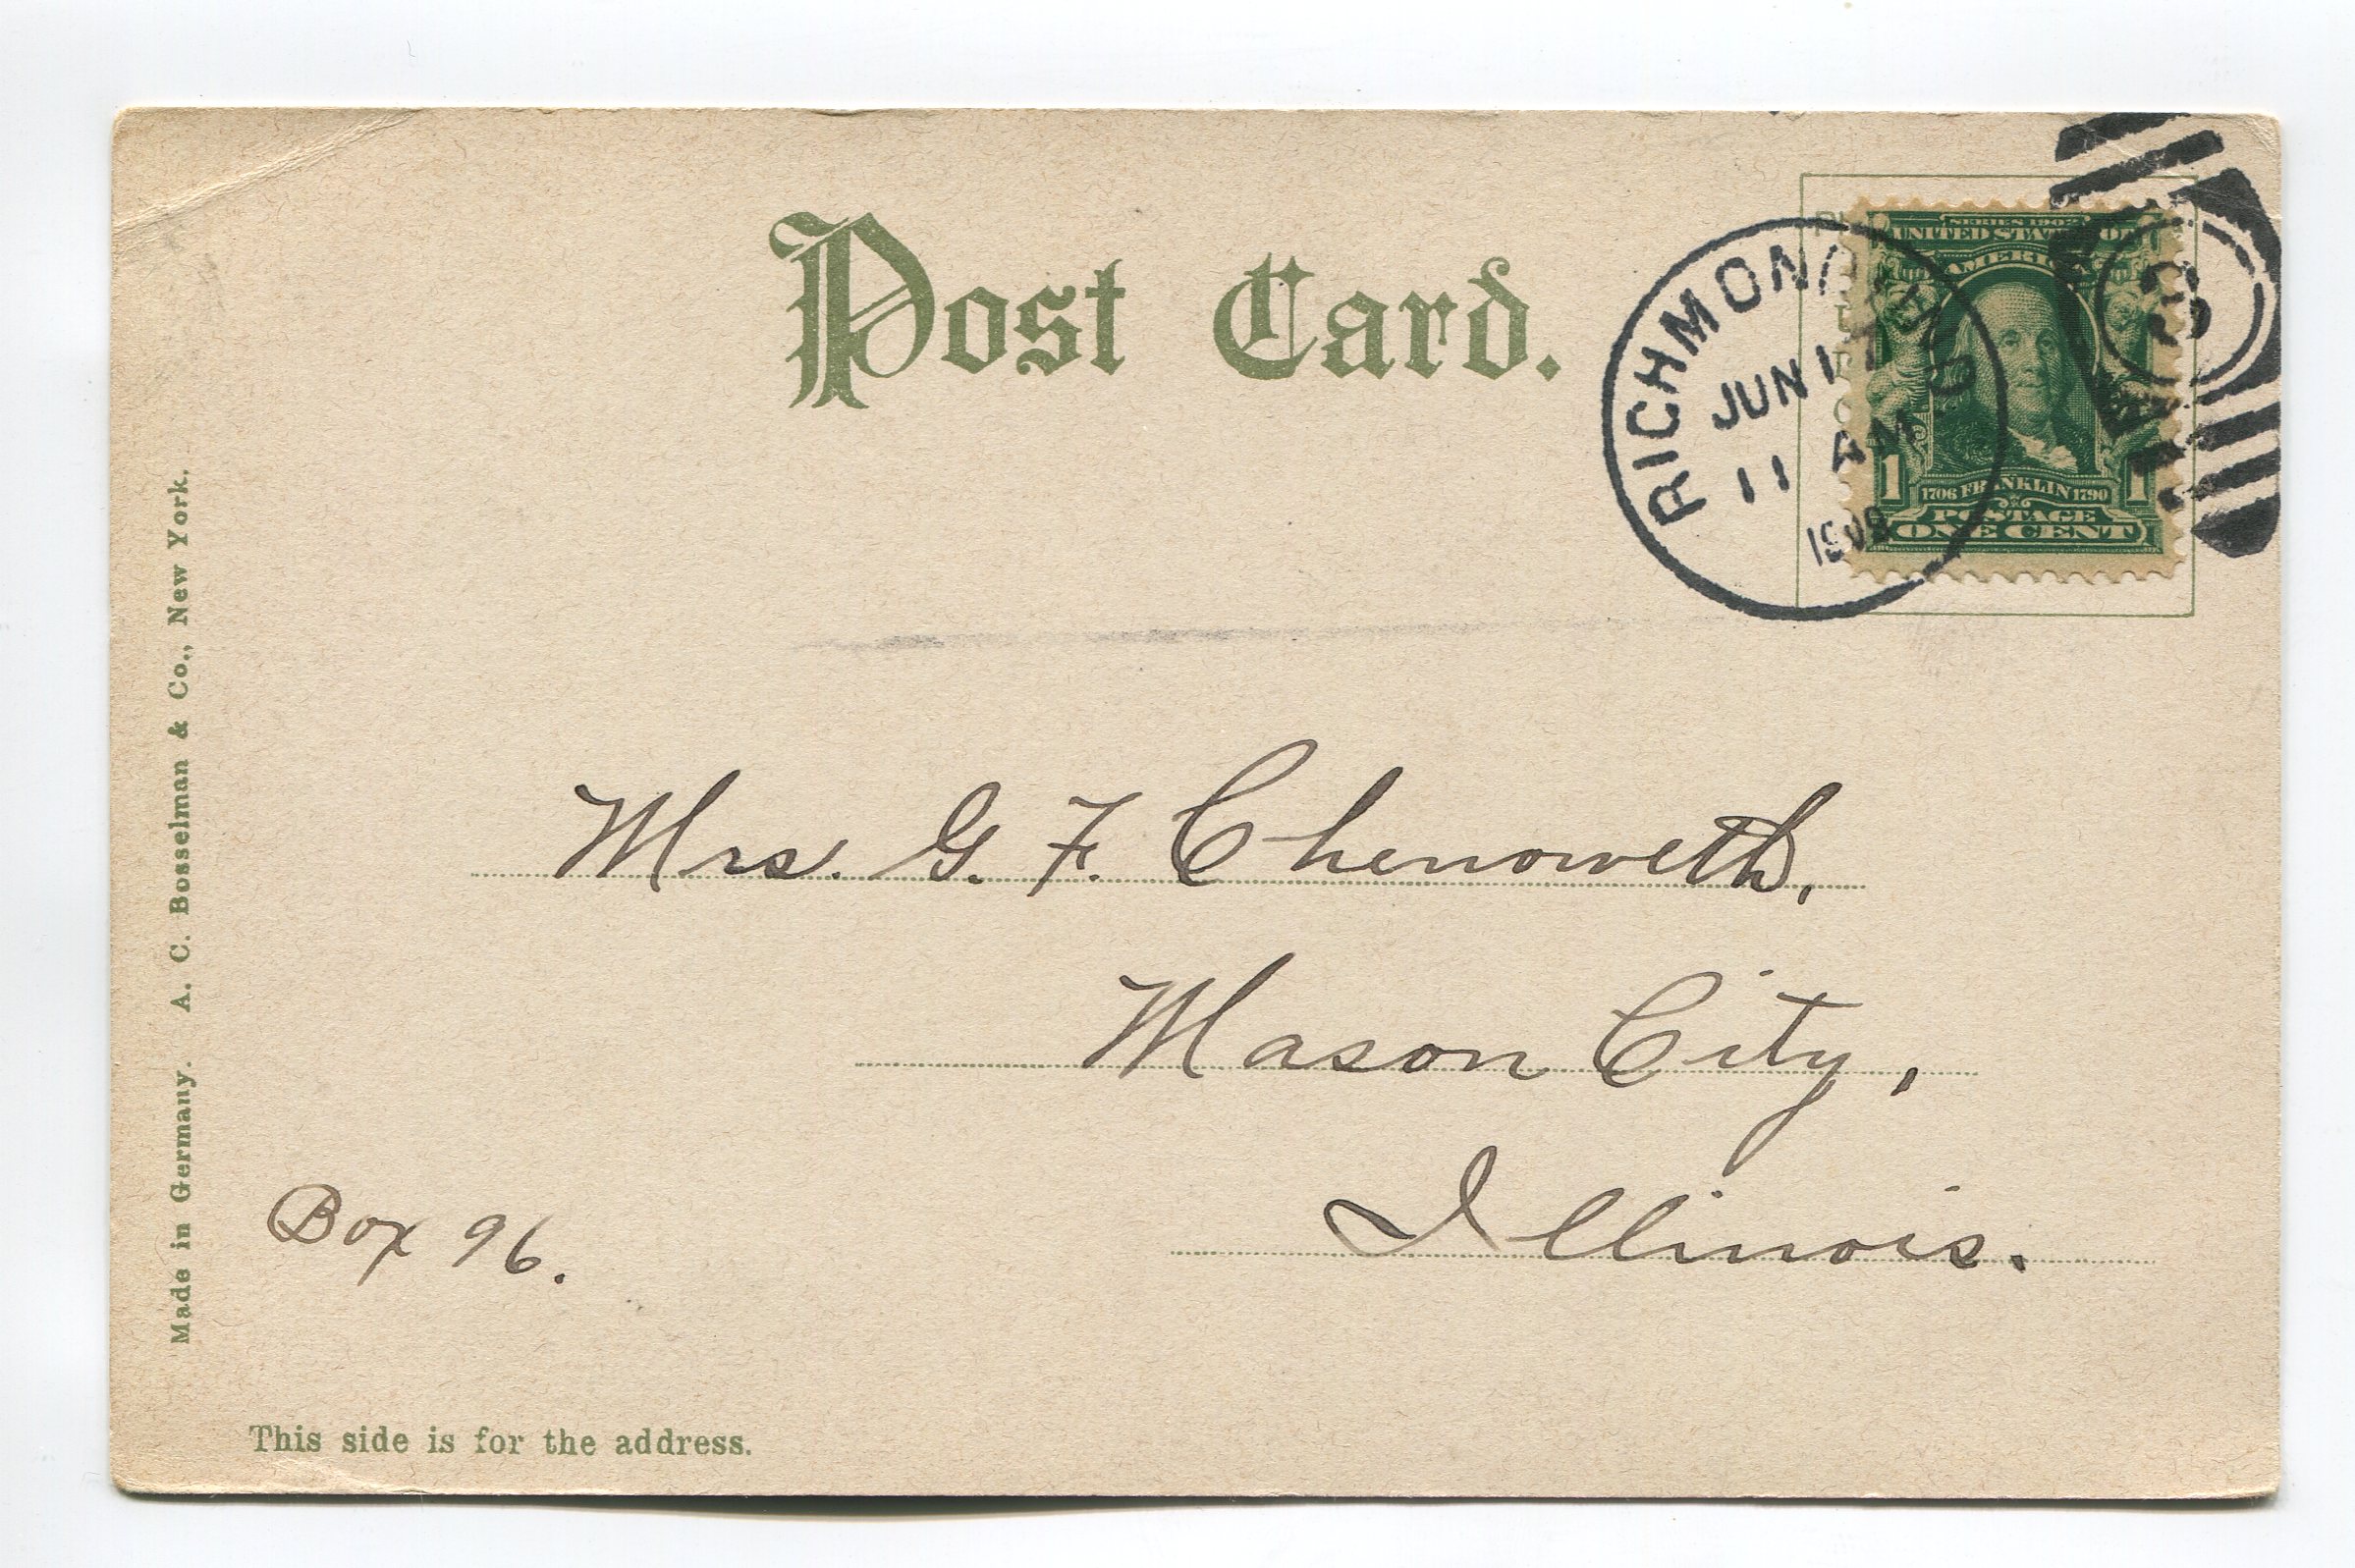 Post Card.
RICHMOND, IND.
JUN 17
11 AM
SERIES 1902
UNITED STATES OF
AMERICA
1706 FRANKLIN 1790
1 1
POSTAGE
ONE CENT
3
Mrs. G. F. Chenoweth,
Mason City,
Illinois.
Box 96.
Made in Germany. A. C. Bosselman & Co., New York.
This side is for the address.